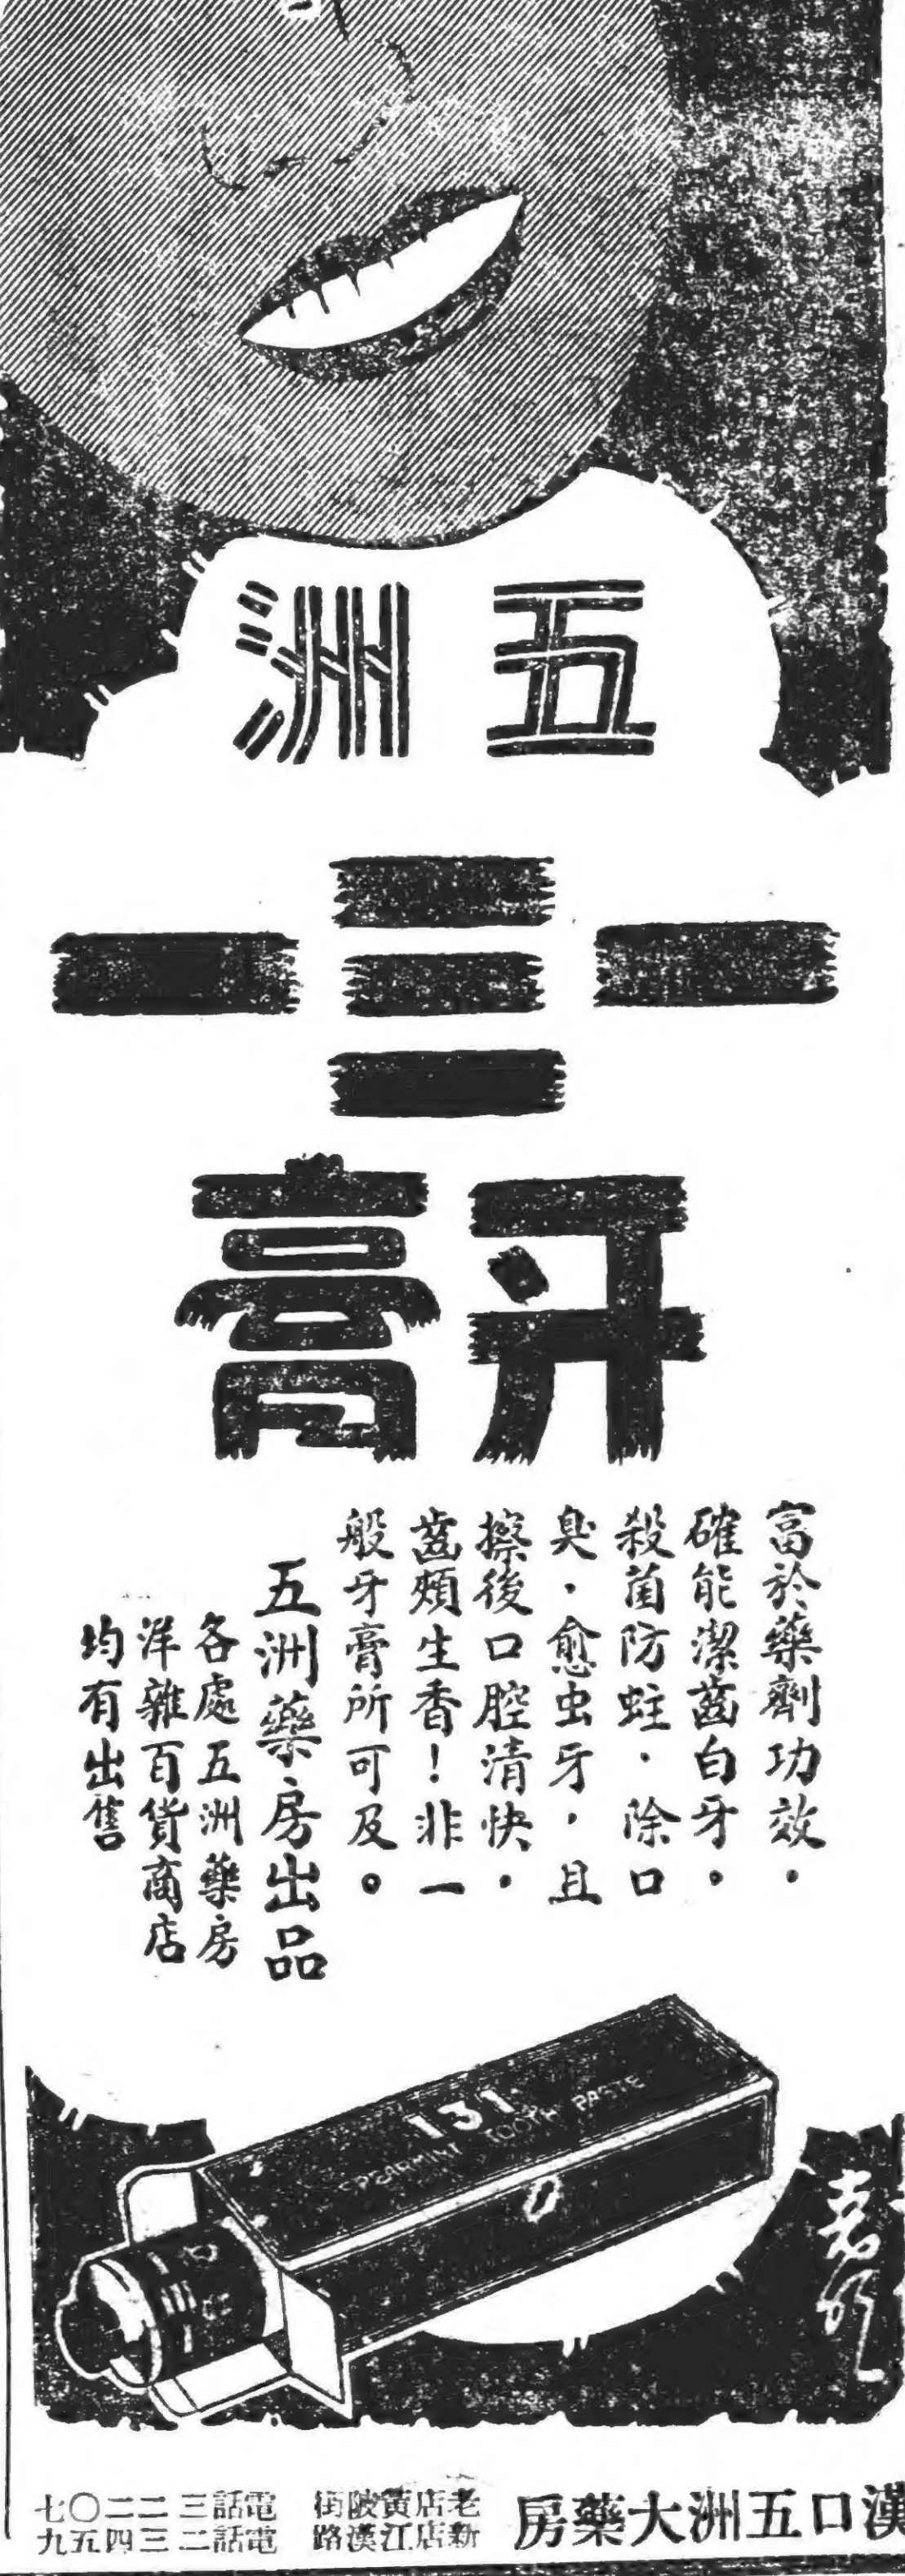 五洲
一三一
牙膏
富於藥劑功效．
確能潔齒白牙。
殺菌防蛀．除口
臭．愈虫牙，且
擦後口腔清快，
齒頰生香！非一
般牙膏所可及。
五洲藥房出品
各處五洲藥房
洋雜百貨商店
均有出售
131
SPEARMINT TOOTH PASTE
漢口五洲大藥房
老店黃陂街 電話三二二〇七
新店江漢路 電話二三四五九